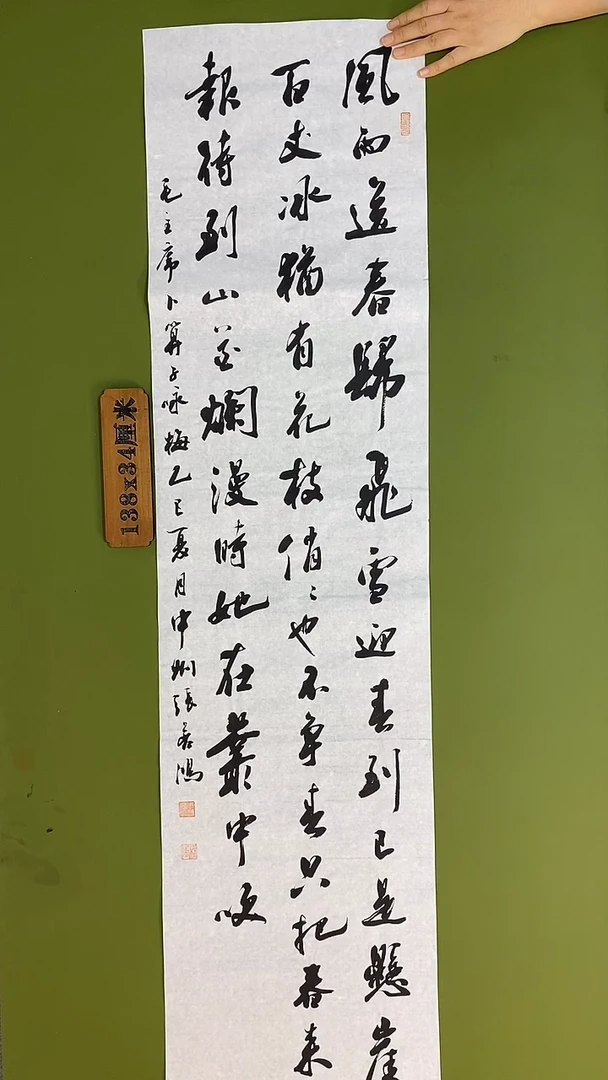 風雨送春歸飛雪迎春到已是懸崖
百丈冰猶有花枝俏〻也不争春只把春来
報待到山花爛漫時她在叢中咲
毛主席卜算子咏梅乙巳夏月中州張若鴻
138x34厘米